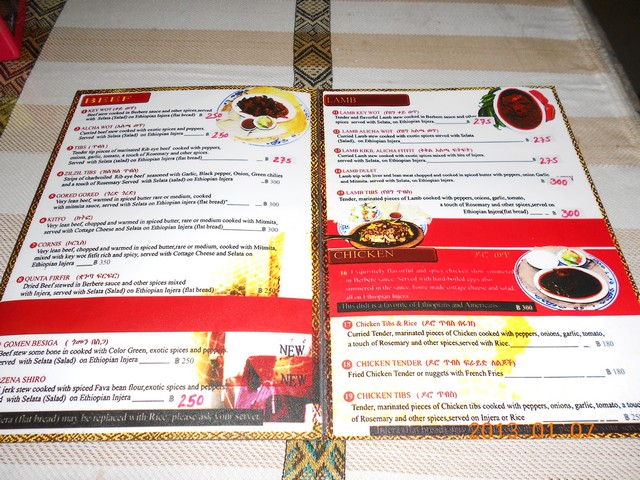 BEEF
KEY WOT (ቀይ ወጥ)
Beef stew cooked in Berbere sauce and other spices, served
with Selata (Salad) on Ethiopian Injera (flat bread) B 250
ALCHA WOT (አልጫ ወጥ)
Curried beef stew cooked with exotic spices and peppers,
Served with Selata (Salad) on Ethiopian Injera B 250
TIBS (ጥብስ)
Tender tip pieces of marinated Rib-eye beef cooked with peppers,
onions, garlic, tomato, a touch of Rosemary and other spices
Served with Selata (Salad) on Ethiopian Injera (flat bread) B 275
ZILZIL TIBS (ዝልዝል ጥብስ)
Strips of Tenderized Rib eye beef seasoned with Garlic, Black pepper, Onion, Green chilies
and a touch of Rosemary Served with Selata (salad) on Ethiopian Injera B 300
GORED GORED (ጎረድ ጎረድ)
Very lean beef, warmed in spiced butter rare or medium, cooked
with mitmita sauce, served with Selata (Salad) on Ethiopian Injera (flat bread) B 300
KITFO (ክትፎ)
Very lean beef, chopped and warmed in spiced butter, rare or medium cooked with Mitmita,
served with Cottage Cheese and Selata on Ethiopian Injera B 300
CORNIS
Very lean beef, chopped and warmed in spiced butter, rare or medium, cooked with Mitmita,
mixed with key wee fitfit rich and spicy, served with Cottage Cheese and Selata on
Ethiopian Injera B 350
QUNTA FIRFIR (ቋንጣ ፍርፍር)
Dried Beef stewed in Berbere sauce and other spices mixed
with Injera, served with Selata (Salad) on Ethiopian Injera (flat bread) B 250
GOMEN BESIGA (ጎመን በስጋ)
Beef stew some bone in cooked with Color Green, exotic spices and peppers
with Selata (Salad) on Ethiopian Injera B 250
NEW
ZENA SHIRO
jerk stew cooked with spiced Fava bean flour, exotic spices and peppers
with Selata (Salad) on Ethiopian Injera B 250
NEW
Injera (flat bread) may be replaced with Rice, please ask your server.
LAMB
LAMB KEY WOT (የበግ ቀይ ወጥ)
Tender and flavorful Lamb stew cooked in Berbere sauce and other
spices, served with Selata on Ethiopian Injera B 275
LAMB ALICHA WOT (የበግ አልጫ ወጥ)
Curried Lamb stew cooked with exotic spices served with Selata
(Salad), on Ethiopian Injera B 275
LAMB KIKIL ALICHA FITFIT
Curried Lamb stew cooked with exotic spices mixed with bits of injera.
served with Selata, on Ethiopian Injera B 275
LAMB DULET
Lamb trip with liver and lean meat chopped and cooked in spiced butter with peppers, onion Garlic
and Mitmita, served with Selata, on Ethiopian Injera. B 300
LAMB TIBS (የበግ ጥብስ)
Tender, marinated pieces of Lamb cooked with peppers, onions, garlic, tomato,
a touch of Rosemary and other spices, served on
Ethiopian Injera (flat bread) B 300
CHICKEN ዶሮ ወጥ
16 Exquisitely flavorful and spicy chicken slow simmered
in Berbere sauce. Served with hard-boiled eggs also
simmered in the sauce, home made cottage cheese and salad,
all on Ethiopian Injera
This dish is a favorite of Ethiopians and Americans. B 300
17 Chicken Tibs & Rice (ዶሮ ጥብስ በሩዝ)
Tender, marinated pieces of Chicken cooked with peppers, onions, garlic, tomato,
a touch of Rosemary and other spices, served with Rice, B 180
18 CHICKEN TENDER
Fried Chicken Tender or nuggets with French Fries B 180
19 CHICKEN TIBS (ዶሮ ጥብስ)
Tender, marinated pieces of Chicken tibs cooked with peppers, onions, garlic, tomato, a touch
of Rosemary and other spices, served on Injera or Rice
2013 01 07